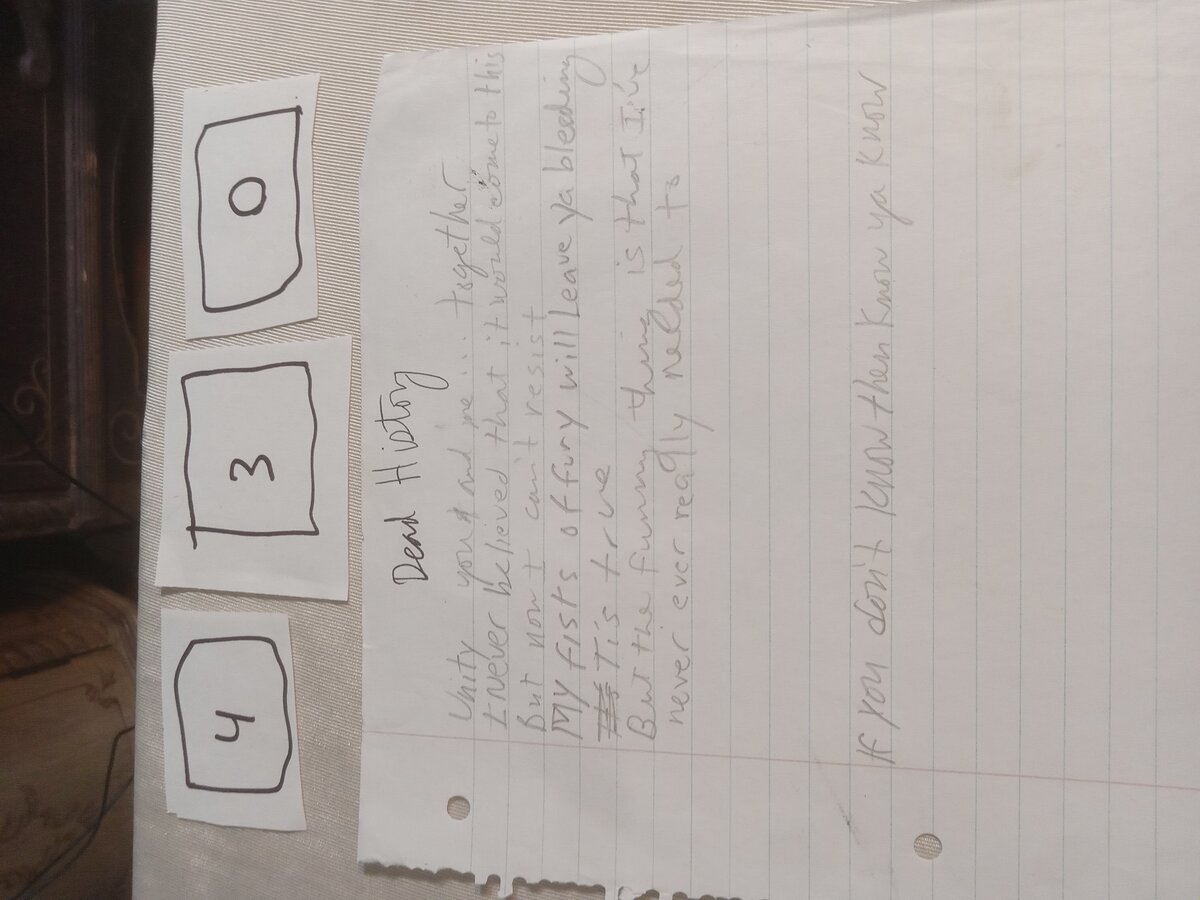 4 3 0
Dead History
Unity you and me... together
I Never believed that it would come to this
But now I can't resist
My fists of fury will leave ya bleeding
Tis true
But the funny thing is that I've
never ever really needed to
If you don't know then know ya know